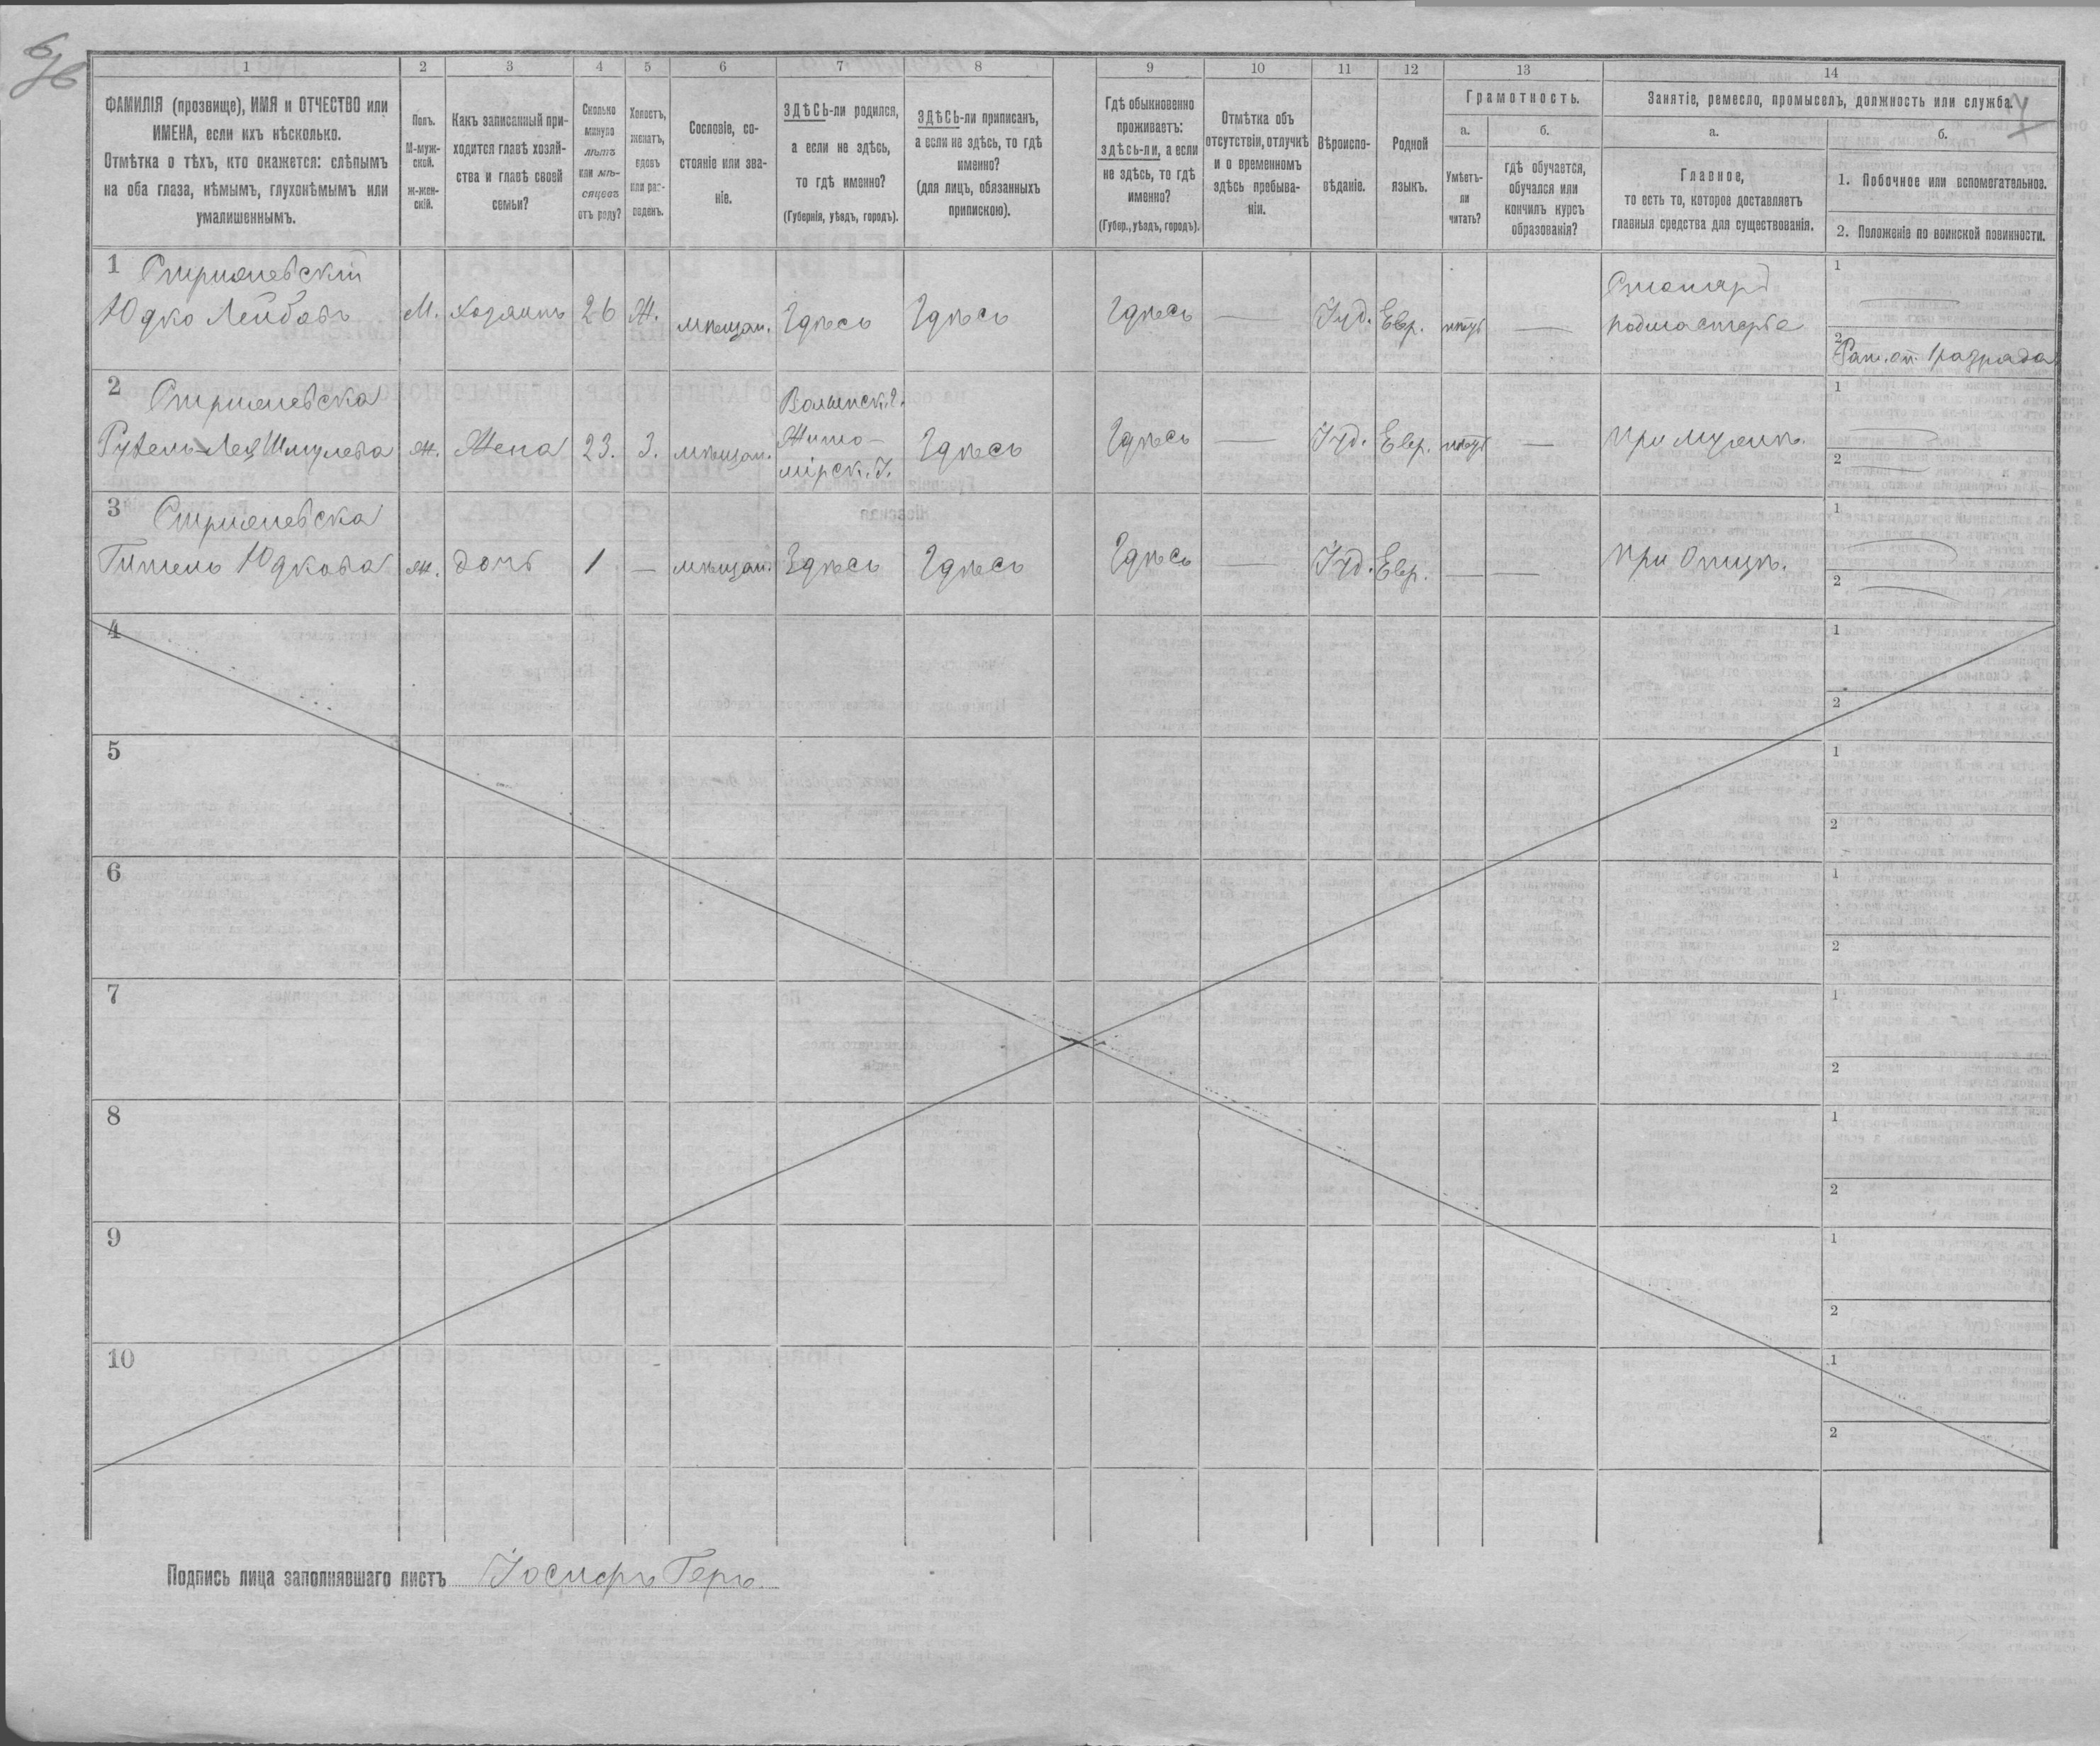 6/6
1 2 3 4 5 6 7 8 9 10 11 12 13 14
ФАМИЛІЯ (прозвище), ИМЯ и ОТЧЕСТВО или
ИМЕНА, если ихъ нѣсколько.
Отмѣтка о тѣхъ, кто окажется: слѣпымъ
на оба глаза, нѣмымъ, глухонѣмымъ или
умалишеннымъ.
Полъ.
М-муж-
ской.
ж-жен-
скій.
Какъ записанный при-
ходится главѣ хозяй-
ства и главѣ своей
семьи?
Сколько
минуло
лѣтъ
или мѣ-
сяцевъ
отъ роду?
Холостъ,
женатъ,
вдовъ
или раз-
веденъ.
Сословіе, со-
стояніе или зва-
ніе.
ЗДѢСЬ-ли родился,
а если не здѣсь,
то гдѣ именно?
(Губернія, уѣздъ, городъ).
ЗДѢСЬ-ли приписанъ,
а если не здѣсь, то гдѣ
именно?
(для лицъ, обязанныхъ
припискою).
Гдѣ обыкновенно
проживаетъ:
здѣсь-ли, а если
не здѣсь, то гдѣ
именно?
(Губер., уѣздъ, городъ).
Отмѣтка объ
отсутствіи, отлучкѣ
и о временномъ
здѣсь пребыва-
ніи.
Вѣроиспо-
вѣданіе.
Родной
языкъ.
Грамотность.
а.
Умѣетъ-
ли
читать?
б.
гдѣ обучается,
обучался или
кончилъ курсъ
образованія?
Занятіе, ремесло, промыселъ, должность или служба.
а.
Главное,
то есть то, которое доставляетъ
главныя средства для существованія.
б.
1. Побочное или вспомогательное.
2. Положеніе по воинской повинности.
1 Стрижевскій
Юдко Лейбовъ М. хозяинъ 26 Ж. мѣщан. Здѣсь Здѣсь Здѣсь — Іуд. Евр. нѣтъ —
подмастерье
1 —
2 Рат. оп. 1 разряда
2 Стрижевска
Рухель-Лея Шмулева ж. Жена 23. З. мѣщан.
Волынск. г.
Жито-
мірск. У.
Здѣсь Здѣсь — Іуд. Евр. нѣтъ — при мужѣ.
1 —
2 —
3 Стрижевска
Гитель Юдкова ж. дочь 1 — мѣщан. Здѣсь Здѣсь Здѣсь — Іуд. Евр. — — при Отцѣ.
1 —
2 —
4
1
2
5
1
2
6
1
2
7
1
2
8
1
2
9
1
2
10
1
2
Подпись лица заполнявшаго листъ Іосифъ Геръ